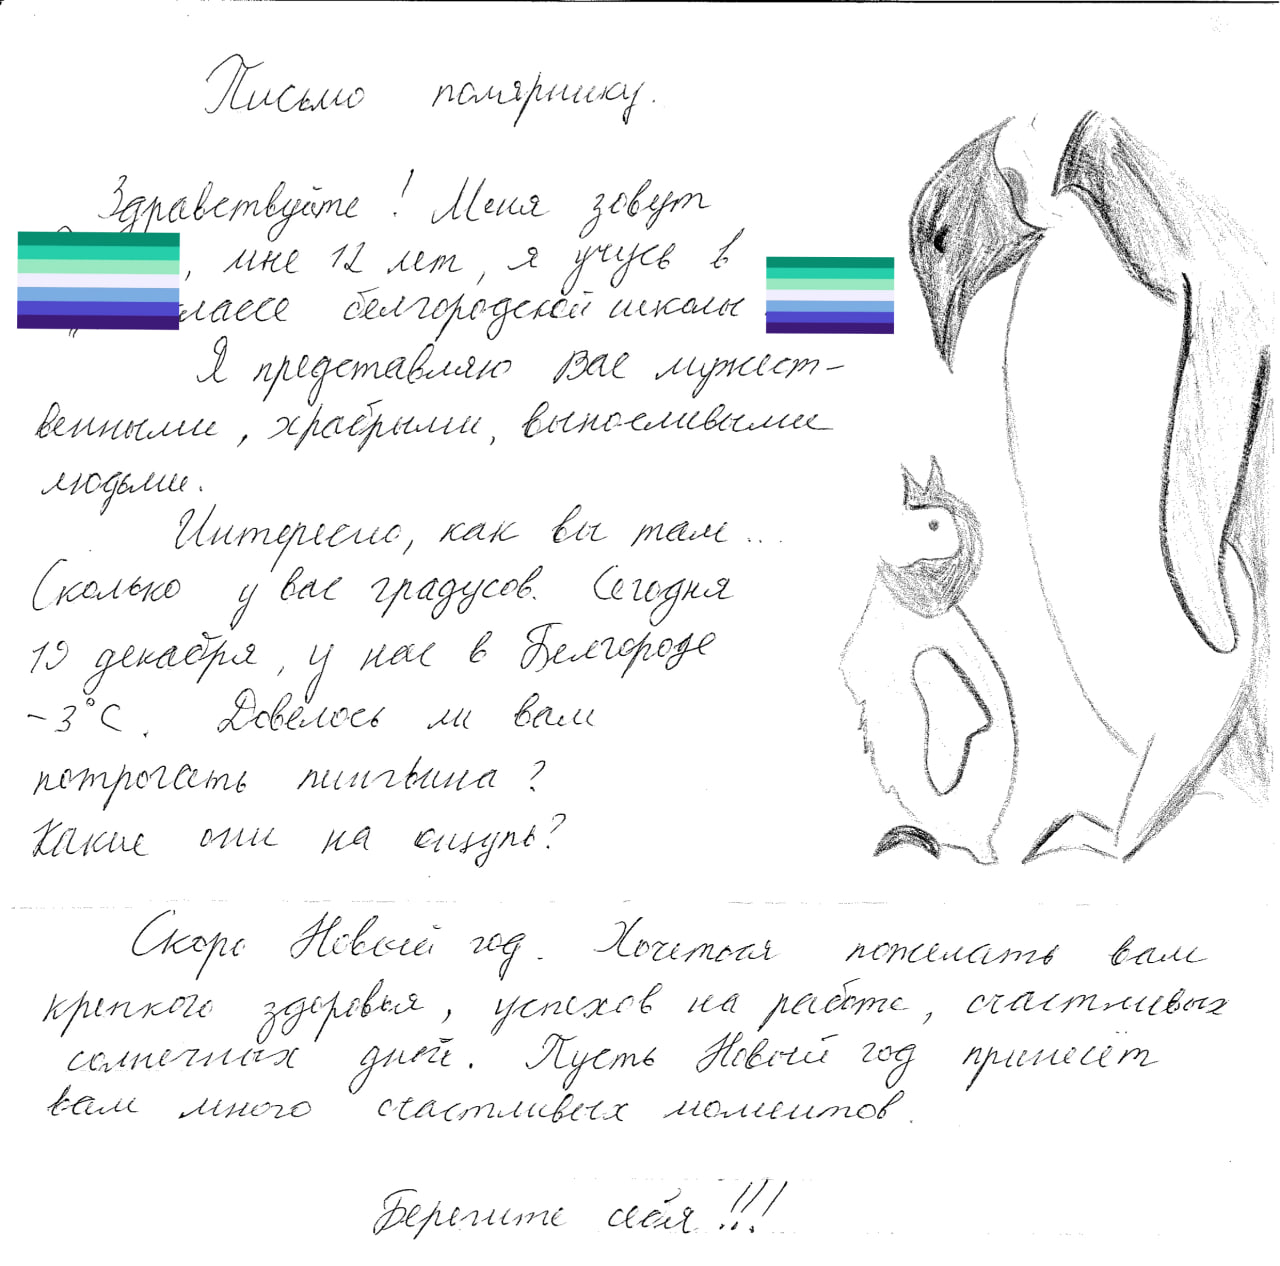 Письмо полярнику.
Здравствуйте! Меня зовут
, мне 12 лет, я учусь в
лассе белгородской школы
Я представляю Вас мужест-
венными, храбрыми, выносливыми
людьми.
Интересно, как вы там...
Сколько у вас градусов. Сегодня
19 декабря, у нас в Белгороде
-3°С. Довелось ли вам
потрогать пингвина?
Какие они на ощупь?
Скоро Новый год. Хочется пожелать вам
крепкого здоровья, успехов на работе, счастливых
солнечных дней. Пусть Новый год принесёт
вам много счастливых моментов.
Берегите себя!!!